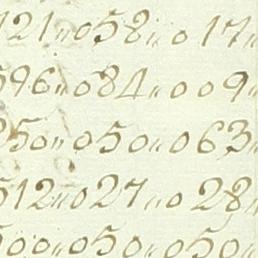 121,,058,,017,,
596,,084,,009,,
50,,050,,063,,
512,,027,,028,,
500,,050,,050,,